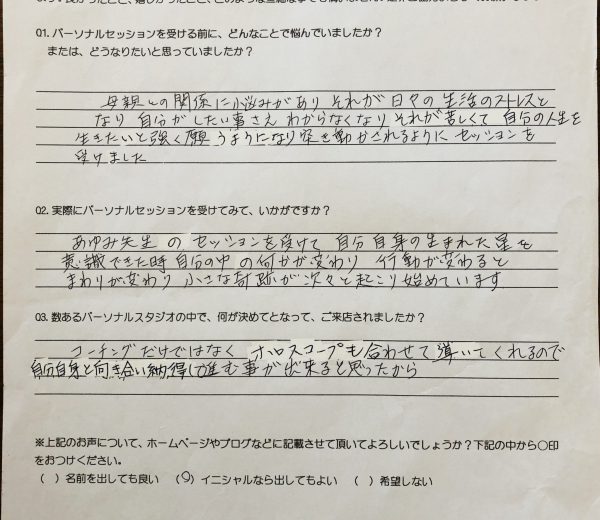 Q1. パーソナルセッションを受ける前に、どんなことで悩んでいましたか？
または、どうなりたいと思っていましたか？
母親との関係に悩みがあり それが日々の生活のストレスと
なり 自分がしたい事さえ わからなくなり それが苦しくて 自分の人生を
生きたいと強く願うようになり突き動かされるように セッションを
受けました
Q2. 実際にパーソナルセッションを受けてみて、いかがですか？
あゆみ先生 の セッションを受けて 自分自身の生まれた星を
意識できた時 自分の中の何かが変わり 行動が変わると
まわりが変わり 小さな奇跡が次々と起こり始めています
Q3. 数あるパーソナルスタジオの中で、何が決めてとなって、ご来店されましたか？
コーチングだけではなく ホロスコープも合わせて導いてくれるので
自分自身と向き合い納得して進む事が出来ると思ったから
※上記のお声について、ホームページやブログなどに記載させて頂いてよろしいでしょうか？下記の中から〇印
をおつけください。
(　) 名前を出しても良い　(○) イニシャルなら出してもよい　(　) 希望しない